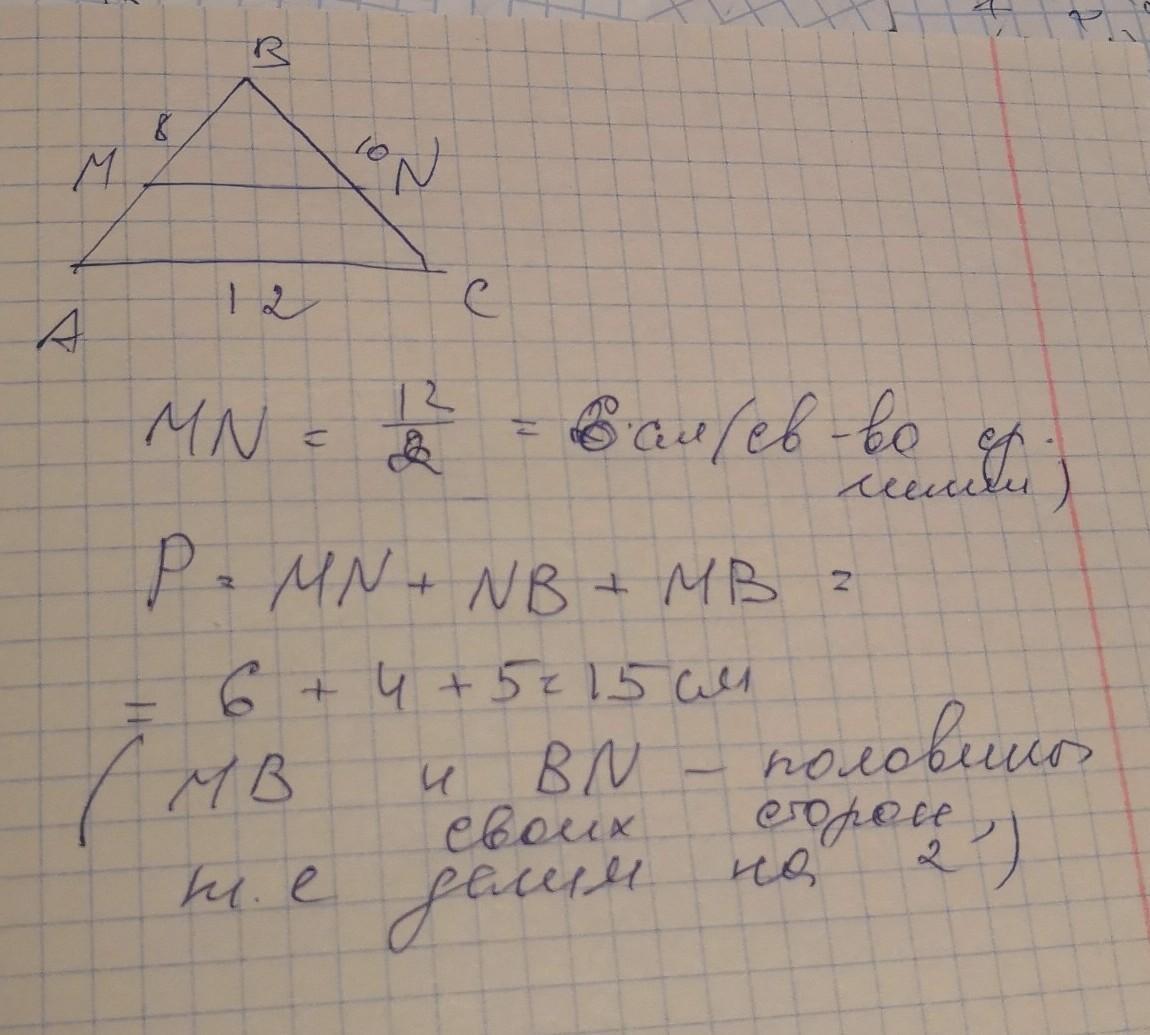 B
8
10
M
N
12
A
C
MN = 12/2 = 6 см (св-во ср.
линии)
P = MN + NB + MB =
= 6 + 4 + 5 = 15 см
(MB и BN – половины
своих сторон,
т.е делим на 2)